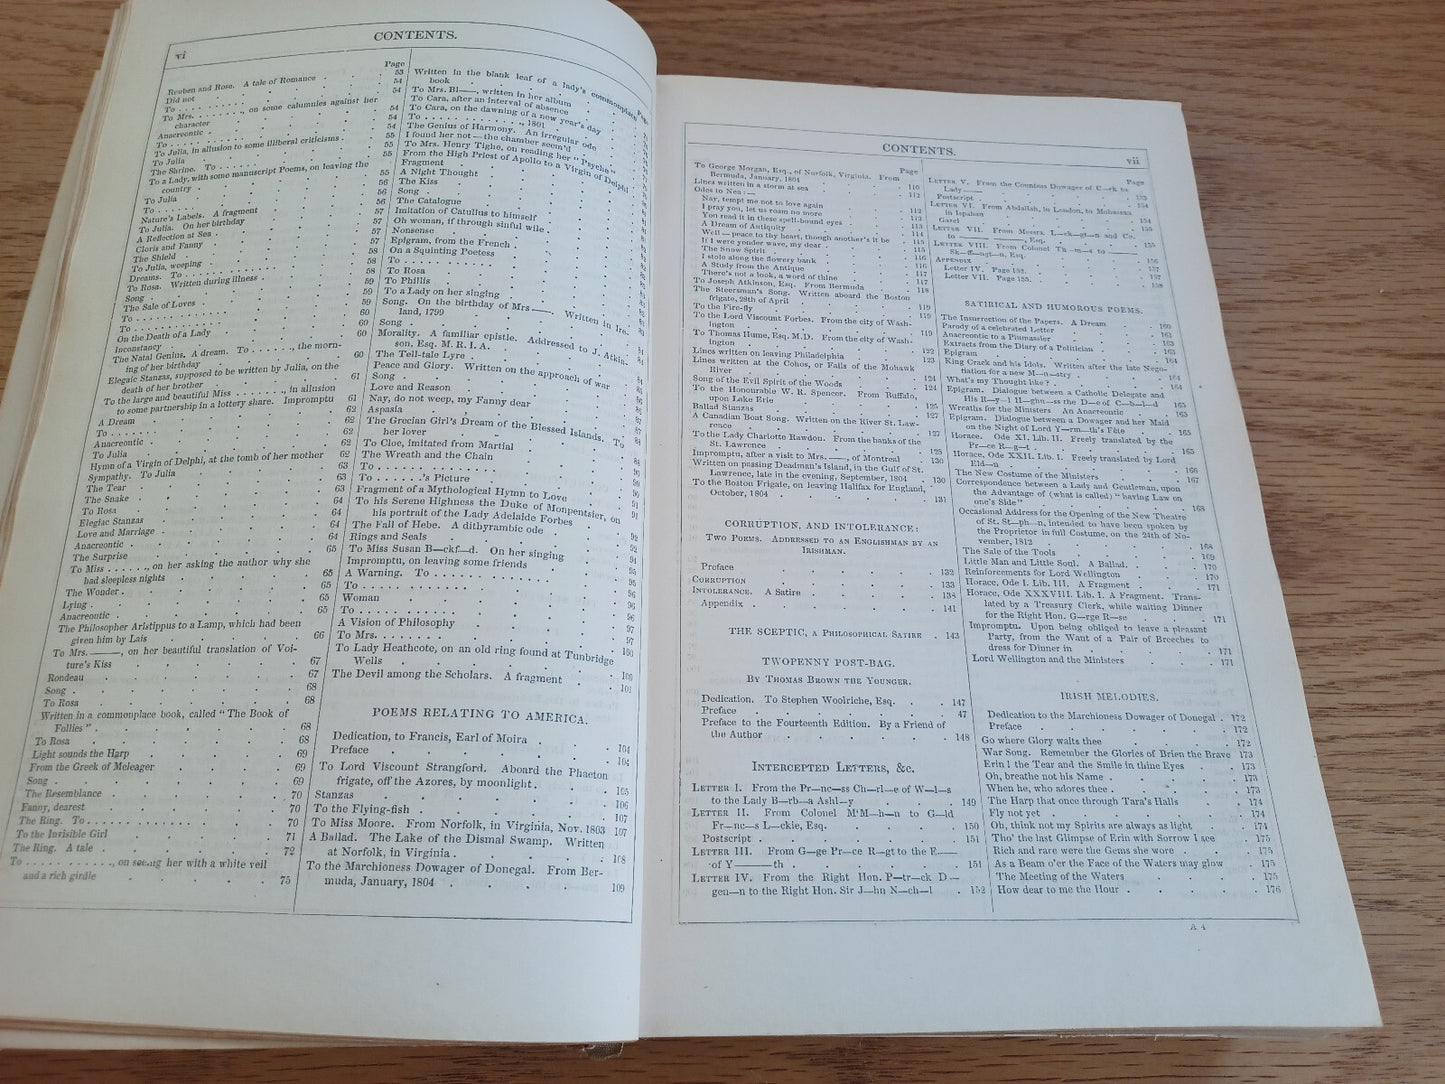 vi
CONTENTS.
Page
Reuben and Rose. A tale of Romance . . . 53
Did not . . . 54
To . . . . . . . . . 54
To Mrs. . . . . . . ., on some calumnies against her
character . . . 54
Anacreontic . . . 54
To . . . . . . . . 54
To Julia, in allusion to some illiberal criticisms . 55
To Julia . . . 55
The Shrine. To . . . . . . . 55
To a Lady, with some manuscript Poems, on leaving the
country . . . 55
To Julia . . . 56
To . . . . . . . 56
Nature's Labels. A fragment . . . 56
To Julia. On her birthday . . . 57
A Reflection at Sea . . . 57
Cloris and Fanny . . . 57
The Shield . . . 57
To Julia, weeping . . . 58
Dreams. To . . . . . . . . 58
To Rosa. Written during illness . . . 58
Song . . . 59
The Sale of Loves . . . 59
To . . . . . . . . 59
To . . . . . . . . 60
On the Death of a Lady . . . 60
Inconstancy . . . 60
The Natal Genius. A dream. To . . . . . ., the morn-
ing of her birthday . . . 60
Elegiac Stanzas, supposed to be written by Julia, on the
death of her brother . . . 61
To the large and beautiful Miss . . . . . ., in allusion
to some partnership in a lottery share. Impromptu 61
A Dream . . . 62
To . . . . . . . . 62
Anacreontic . . . 62
To Julia . . . 62
Hymn of a Virgin of Delphi, at the tomb of her mother 62
Sympathy. To Julia . . . 63
The Tear . . . 63
The Snake . . . 63
To Rosa . . . 64
Elegiac Stanzas . . . 64
Love and Marriage . . . 64
Anacreontic . . . 64
The Surprise . . . 65
To Miss . . . . . ., on her asking the author why she
had sleepless nights . . . 65
The Wonder . . . 65
Lying . . . 65
Anacreontic . . . 65
The Philosopher Aristippus to a Lamp, which had been
given him by Lais . . . 66
To Mrs. ——, on her beautiful translation of Voi-
ture's Kiss . . . 67
Rondeau . . . 67
Song . . . 68
To Rosa . . . 68
Written in a commonplace book, called "The Book of
Follies" . . . 68
To Rosa . . . 68
Light sounds the Harp . . . 69
From the Greek of Meleager . . . 69
Song . . . 69
The Resemblance . . . 70
Fanny, dearest . . . 70
The Ring. To . . . . . . . 70
To the Invisible Girl . . . 71
The Ring. A tale . . . 72
To . . . . . . . . . . ., on seeing her with a white veil
and a rich girdle . . . 75
Page
Written in the blank leaf of a lady's commonplace
book
To Mrs. Bl——, written in her album
To Cara, after an interval of absence
To Cara, on the dawning of a new year's day
To . . . . . . . . . ., 1801
The Genius of Harmony. An irregular ode
I found her not — the chamber seem'd
To Mrs. Henry Tighe, on reading her "Psyche"
From the High Priest of Apollo to a Virgin of Delphi
Fragment
A Night Thought
The Kiss
Song
The Catalogue
Imitation of Catullus to himself
Oh woman, if through sinful wile
Nonsense
Epigram, from the French
On a Squinting Poetess
To . . . . . . . .
To Rosa
To Phillis
To a Lady on her singing
Song. On the birthday of Mrs ——. Written in Ire-
land, 1799
Song
Morality. A familiar epistle. Addressed to J. Atkin-
son, Esq. M. R. I. A.
The Tell-tale Lyre
Peace and Glory. Written on the approach of war
Song
Love and Reason
Nay, do not weep, my Fanny dear
Aspasia
The Grecian Girl's Dream of the Blessed Islands. To
her lover
To Cloe, imitated from Martial
The Wreath and the Chain
To . . . . . . . .
To . . . . . . .'s Picture
Fragment of a Mythological Hymn to Love
To his Serene Highness the Duke of Monpentsier, on
his portrait of the Lady Adelaide Forbes
The Fall of Hebe. A dithyrambic ode . . . 92
Rings and Seals
To Miss Susan B—ckf—d. On her singing
Impromptu, on leaving some friends
A Warning. To . . . . . . . . . .
To . . . . . . . .
Woman . . . 96
To . . . . . . . .
A Vision of Philosophy . . . 97
To Mrs. . . . . . . .
To Lady Heathcote, on an old ring found at Tunbridge
Wells . . . 100
The Devil among the Scholars. A fragment . . . 101
POEMS RELATING TO AMERICA.
Dedication, to Francis, Earl of Moira . . . 104
Preface . . . 104
To Lord Viscount Strangford. Aboard the Phaeton
frigate, off the Azores, by moonlight . . . 105
Stanzas . . . 106
To the Flying-fish . . . 107
To Miss Moore. From Norfolk, in Virginia, Nov. 1803 107
A Ballad. The Lake of the Dismal Swamp. Written
at Norfolk, in Virginia . . . 108
To the Marchioness Dowager of Donegal. From Ber-
muda, January, 1804 . . . 109
CONTENTS.
vii
Page
To George Morgan, Esq., of Norfolk, Virginia. From
Bermuda, January, 1804 . . . 110
Lines written in a storm at sea . . . 112
Odes to Nea: —
Nay, tempt me not to love again . . . 112
I pray you, let us roam no more . . . 112
You read it in these spell-bound eyes . . . 113
A Dream of Antiquity . . . 114
Well — peace to thy heart, though another's it be . 115
If I were yonder wave, my dear . . . 115
The Snow Spirit . . . 116
I stole along the flowery bank . . . 116
A Study from the Antique . . . 117
There's not a look, a word of thine . . . 117
To Joseph Atkinson, Esq. From Bermuda . . . 118
The Steersman's Song. Written aboard the Boston
frigate, 28th of April . . . 119
To the Fire-fly . . . 119
To the Lord Viscount Forbes. From the city of Wash-
ington . . . 119
To Thomas Hume, Esq. M.D. From the city of Wash-
ington . . . 122
Lines written on leaving Philadelphia . . . 123
Lines written at the Cohos, or Falls of the Mohawk
River . . . 124
Song of the Evil Spirit of the Woods . . . 124
To the Honourable W. R. Spencer. From Buffalo,
upon Lake Erie . . . 125
Ballad Stanzas . . . 127
A Canadian Boat Song. Written on the River St. Law-
rence . . . 127
To the Lady Charlotte Rawdon. From the banks of the
St. Lawrence . . . 128
Impromptu, after a visit to Mrs. ——, of Montreal . 130
Written on passing Deadman's Island, in the Gulf of St.
Lawrence, late in the evening, September, 1804 . 130
To the Boston Frigate, on leaving Halifax for England,
October, 1804 . . . 131
CORRUPTION, AND INTOLERANCE:
TWO POEMS. ADDRESSED TO AN ENGLISHMAN BY AN
IRISHMAN.
Preface . . . 132
CORRUPTION . . . 133
INTOLERANCE. A Satire . . . 138
Appendix . . . 141
THE SCEPTIC, A PHILOSOPHICAL SATIRE . 143
TWOPENNY POST-BAG.
BY THOMAS BROWN THE YOUNGER.
Dedication. To Stephen Woolriche, Esq. . . . 147
Preface . . . 47
Preface to the Fourteenth Edition. By a Friend of
the Author . . . 148
INTERCEPTED LETTERS, &c.
LETTER I. From the Pr—nc—ss Ch—rl—e of W—l—s
to the Lady B—rb—a Ashl—y . . . 149
LETTER II. From Colonel M'M—h—n to G—ld
Fr—nc—s L—ckie, Esq. . . . 150
Postscript . . . 151
LETTER III. From G—ge Pr—ce R—gt to the E——
of Y——th . . . 151
LETTER IV. From the Right Hon. P—tr—ck D—
gen—n to the Right Hon. Sir J—hn N—ch—l . 152
Page
LETTER V. From the Countess Dowager of C—rk to
Lady —— . . . 153
Postscript . . . 154
LETTER VI. From Abdallah, in London, to Mohassan
in Ispahan . . . 154
Gazel . . . 155
LETTER VII. From Messrs. L—ck—gt—n and Co.
to —— ——, Esq. . . . 155
LETTER VIII. From Colonel Th—m—s to ——
Sk—ff—ngt—n, Esq. . . . 156
APPENDIX . . . 157
Letter IV. Page 152. . . . 157
Letter VII. Page 155. . . . 158
SATIRICAL AND HUMOROUS POEMS.
The Insurrection of the Papers. A Dream . . . 160
Parody of a celebrated Letter . . . 161
Anacreontic to a Plumassier . . . 163
Extracts from the Diary of a Politician . . . 163
Epigram . . . 164
King Crack and his Idols. Written after the late Nego-
tiation for a new M—n—stry . . . 164
What's my Thought like? . . . 164
Epigram. Dialogue between a Catholic Delegate and
His R—y—l H—ghn—ss the D—e of C—b—l—d 165
Wreaths for the Ministers An Anacreontic . . . 165
Epigram. Dialogue between a Dowager and her Maid
on the Night of Lord Y—rm—th's Fête . . . 165
Horace. Ode XI. Lib. II. Freely translated by the
Pr—ce R—g—t . . . 165
Horace, Ode XXII. Lib. I. Freely translated by Lord
Eld—n . . . 166
The New Costume of the Ministers . . . 167
Correspondence between a Lady and Gentleman, upon
the Advantage of (what is called) "having Law on
one's Side" . . . 168
Occasional Address for the Opening of the New Theatre
of St. St—ph—n, intended to have been spoken by
the Proprietor in full Costume, on the 24th of No-
vember, 1812 . . . 168
The Sale of the Tools . . . 169
Little Man and Little Soul. A Ballad . . . 170
Reinforcements for Lord Wellington . . . 170
Horace, Ode I. Lib. III. A Fragment . . . 171
Horace, Ode XXXVIII. Lib. I. A Fragment. Trans-
lated by a Treasury Clerk, while waiting Dinner
for the Right Hon. G—rge R—se . . . 171
Impromptu. Upon being obliged to leave a pleasant
Party, from the Want of a Pair of Breeches to
dress for Dinner in . . . 171
Lord Wellington and the Ministers . . . 171
IRISH MELODIES.
Dedication to the Marchioness Dowager of Donegal . 172
Preface . . . 172
Go where Glory waits thee . . . 172
War Song. Remember the Glories of Brien the Brave 173
Erin! the Tear and the Smile in thine Eyes . . . 173
Oh, breathe not his Name . . . 173
When he, who adores thee . . . 173
The Harp that once through Tara's Halls . . . 174
Fly not yet . . . 174
Oh, think not my Spirits are always as light . . . 174
Tho' the last Glimpse of Erin with Sorrow I see . 175
Rich and rare were the Gems she wore . . . 175
As a Beam o'er the Face of the Waters may glow . 175
The Meeting of the Waters . . . 175
How dear to me the Hour . . . 176
A 4